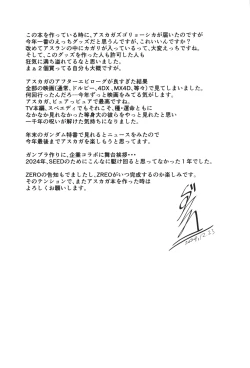 この本を作っている時に、アスカガズゴリョーシカが届いたのですが
今年一番のえっちグッズだと思うんですが、これいいんですか？
改めてアスランの中にカガリが入っているって、大変えっちですね。
そして、このグッズを作った人も許可した人も
狂気に満ち溢れてるなと思いました。
まぁ2個買ってる自分も大概ですが。
アスカガのアフターエピローグが良すぎた結果
全部の映画(通常、ドルビー、4DX、MX4D、等々)で見てしまいました。
何回行ったんだろ…今年ずっと映画をみてる気がします。
アスカガ、ピュアッピュアで最高ですね。
TV本編、スペエディでもそれこそ、種・運命ともに
なかなか見れなかった等身大の彼らをやっと見れたと思い
一千年の呪いが解けた気持ちになりました。
年末のガンダム特番で見れるとニュースをみたので
今年最後までアスカガを楽しもうと思ってます。
ガンプラ作りに、企業コラボに舞台挨拶・・・
2024年、SEEDのためにこんなに駆け回ると思ってなかった1年でした。
ZEROの告知もでましたし、ZREOがいつ完成するのか楽しみです。
そのテンションで、またアスカガ本を作った時は
よろしくお願いします。
2024.12.23